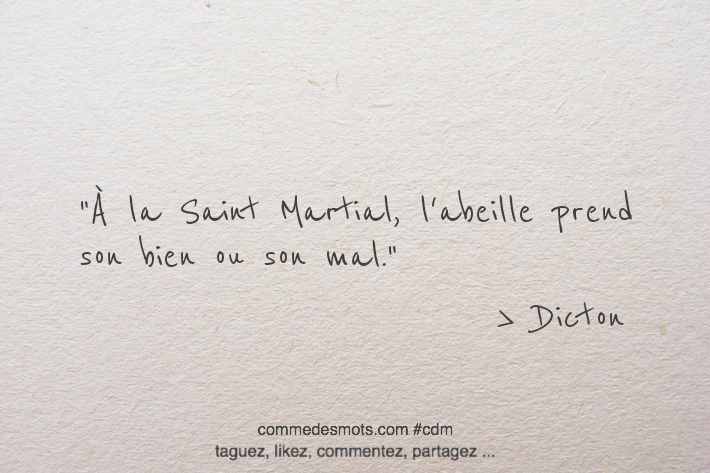 "À la Saint Martial, l'abeille prend
son bien ou son mal."
> Dicton
commedesmots.com #cdm
taguez, likez, commentez, partagez ...